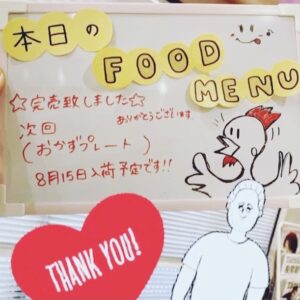 本日の
FOOD
MENU
☆完売致しました☆
ありがとうございます
次回
(おかずプレート)
8月15日入荷予定です!!
THANK YOU!